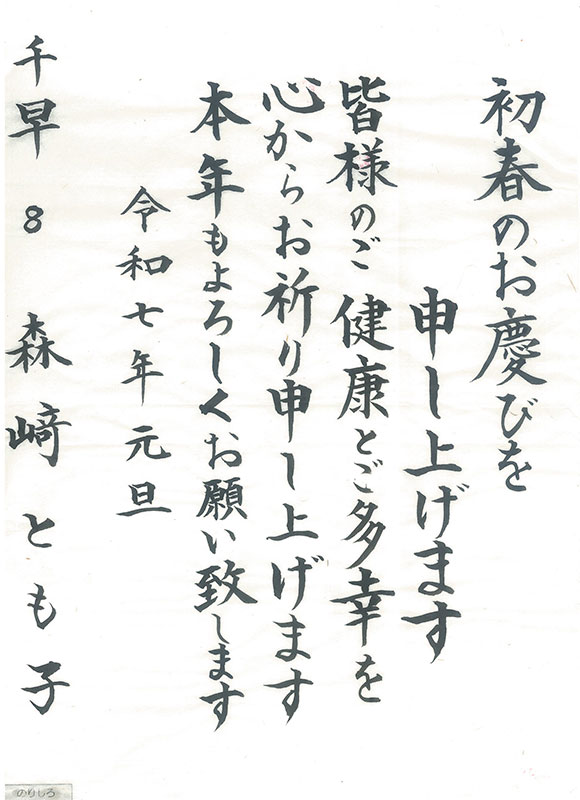 初春のお慶びを
申し上げます
皆様のご健康とご多幸を
心からお祈り申し上げます
本年もよろしくお願い致します
令和七年元旦
千早 8 森﨑とも子
のりしろ